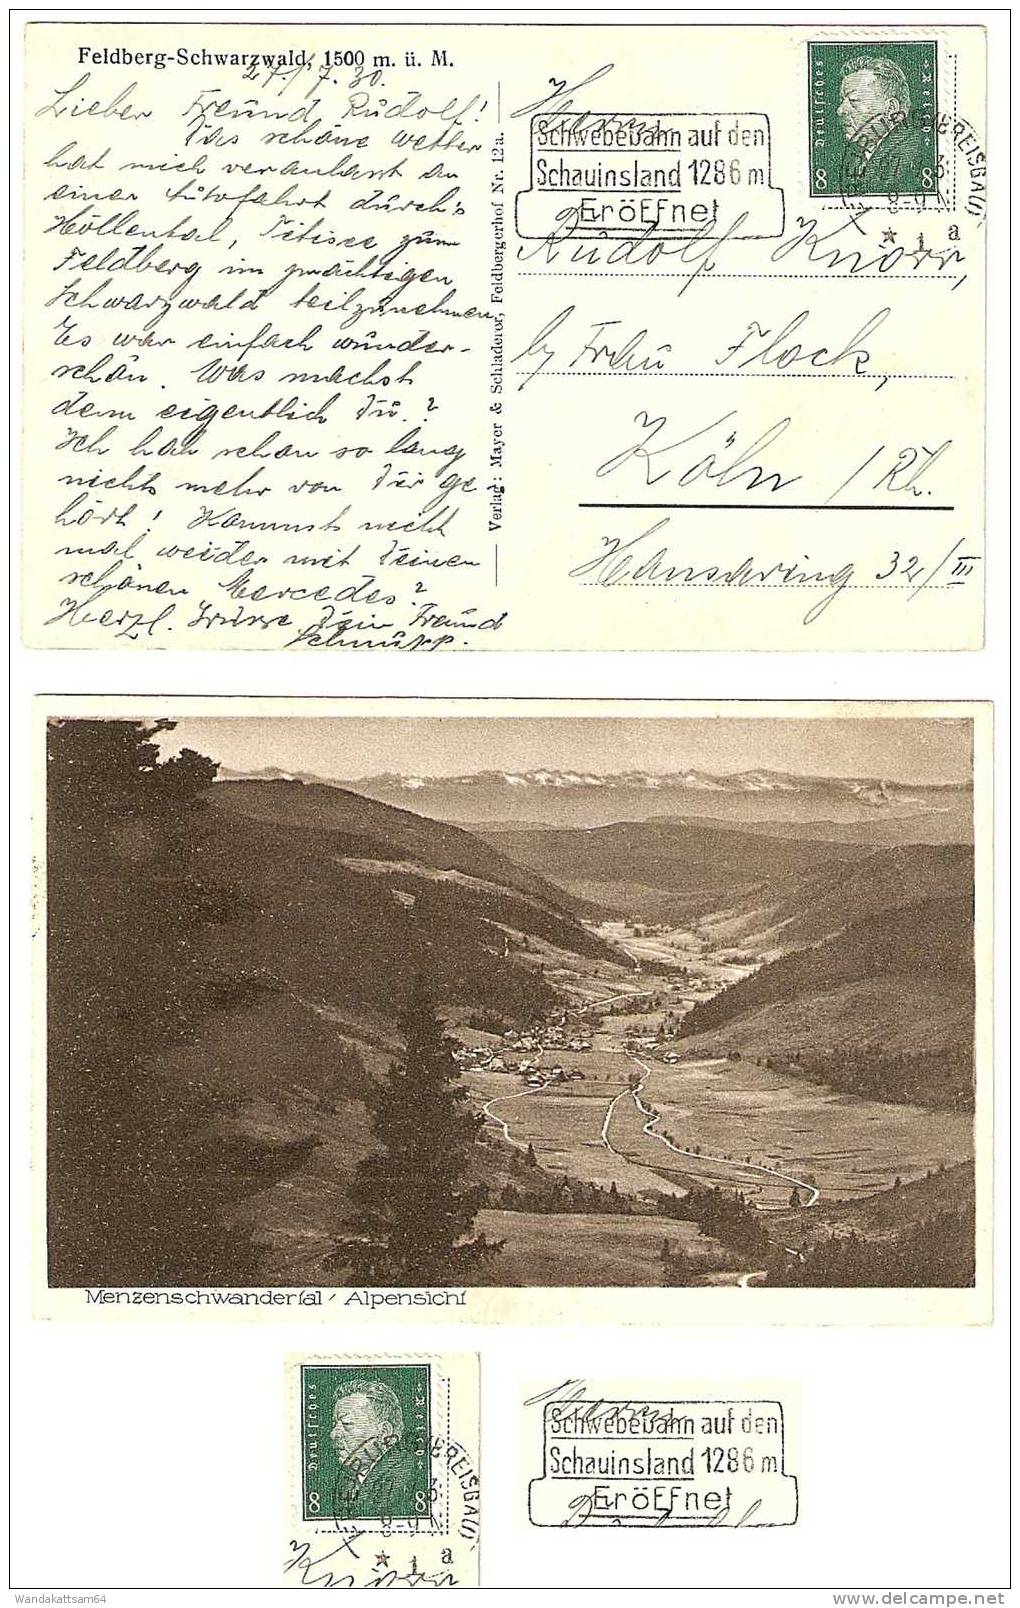 Feldberg-Schwarzwald, 1500 m. ü. M.
27./7.30.
Lieber Freund Rudolf!
Das schöne Wetter
hat mich veranlasst an
einer Autofahrt durch's
Höllental, Titisee zum
Feldberg im prächtigen
Schwarzwald teilzunehmen.
Es war einfach wunder-
schön. Was machst
denn eigentlich Du?
Ich hab schon so lang
nichts mehr von Dir ge-
hört! Kommst nicht
mal weider mit Deinen
schönen Mercedes?
Herzl. Grüsse Dein Freund
Schnupp.
Verlag: Mayer & Schladerer, Feldbergerhof Nr. 12a.
Deutsches Reich
8 8
Schwebebahn auf den
Schauinsland 1286 m
Eröffnet
FREIBURG (BREISGAU)
8-9
* 1 a
Herrn
Rudolf Knorr,
by Frau Flock,
Köln / Rh.
Hansaring 32/III
Menzenschwandertal / Alpensicht
Deutsches Reich
8 8
FREIBURG (BREISGAU)
8-9
* 1 a
Knorr
Herrn
Schwebebahn auf den
Schauinsland 1286 m
Eröffnet
Wandakattsam64
delcampe.net